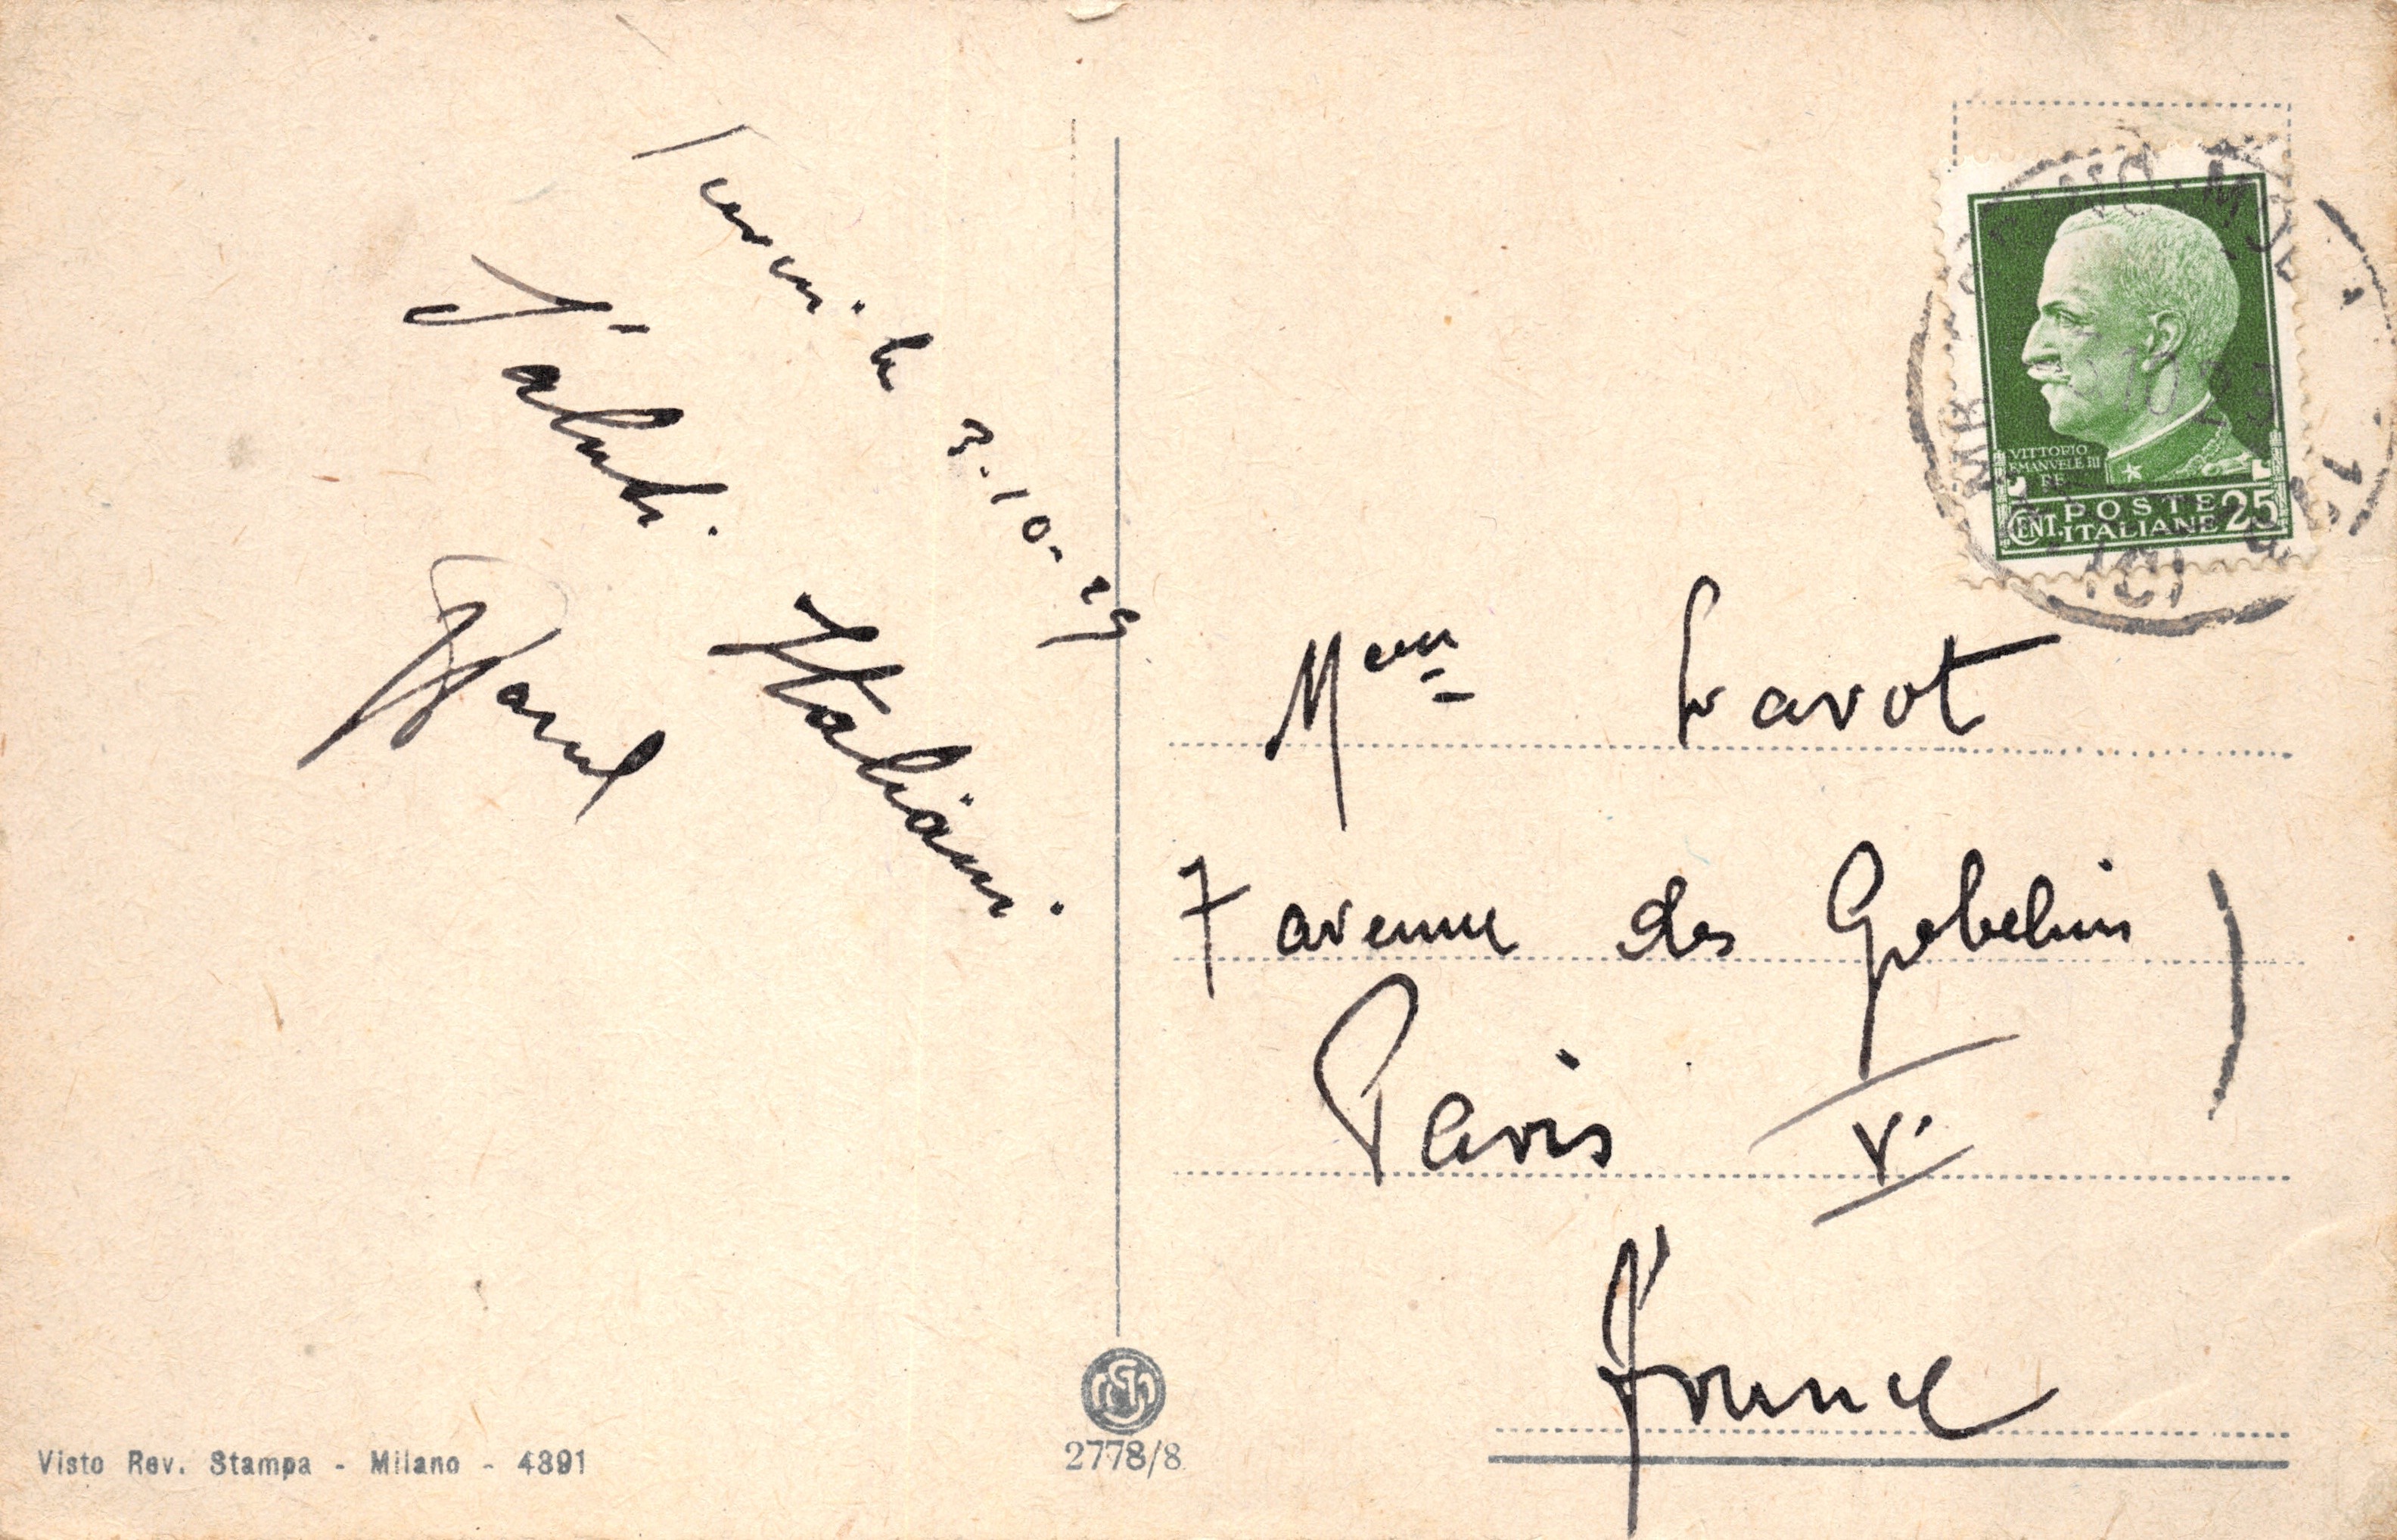 3. 10. 29
Saluti. Italiani.
Mme Lavot
7 avenue des Gobelins
Paris V.
France
VITTORIO
EMANVELE III
RE
CENT. POSTE 25
ITALIANE
2778/8
Visto Rev. Stampa - Milano - 4391